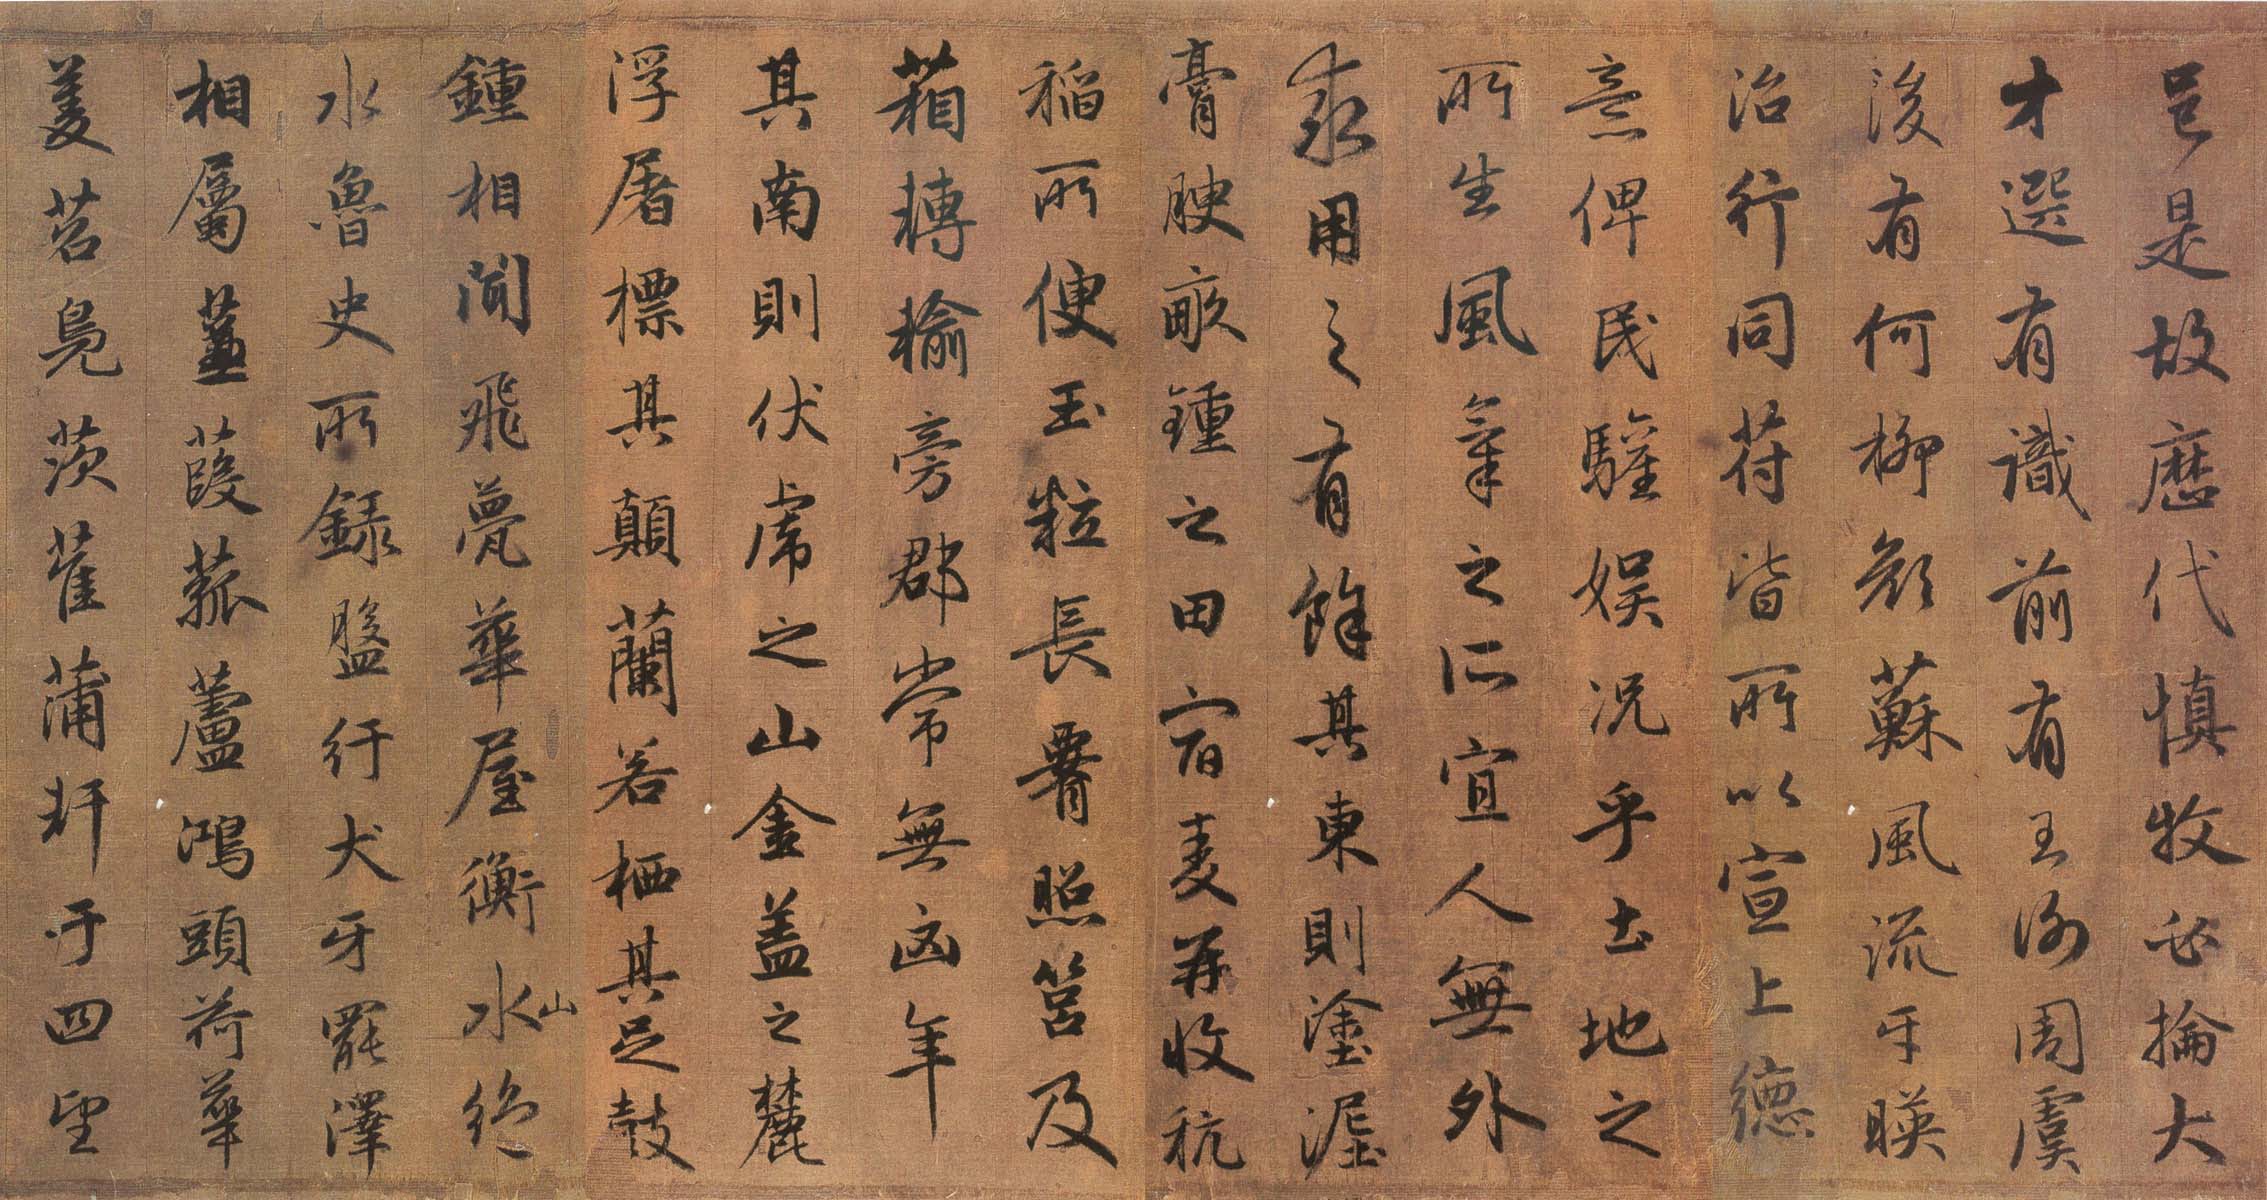 邑是故歷代慎牧必掄大
才選有識前有王謝周虞
後有何柳顏蘇風流互映
治行同符皆所以宣上德
意俾民驩娛況乎土地之
所生風氣之所宜人無外
求用之有餘其東則塗埿
膏腴畝鍾之田宿麥再收秔
稻所便玉粒長腰照筥及
箱轉輸旁郡常無凶年
其南則伏虎之山金蓋之麓
浮屠標其顛蘭若栖其足鼓
鍾相聞飛甍華屋衡水山絕
水魯史所錄盤紆犬牙罷澤
相屬蒹葭菰蘆鴻頭荷華
菱苕鳧茨萑蒲軒于四望